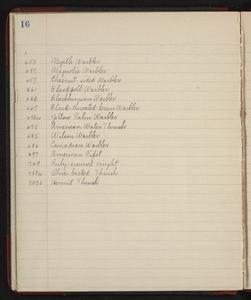 16
655 Myrtle Warbler
657 Magnolia Warbler
659 Chesnut sided Warbler
661 Blackpoll Warbler
662 Blackburnian Warbler
667 Black throated Green Warbler
672a Yellow Palm Warbler
675 American Water Thrush
685 Wilson Warbler
686 Canadian Warbler
697 American Pipit
749 Ruby crowned Kinglet
758a Olive backed Thrush
759b Hermit Thrush